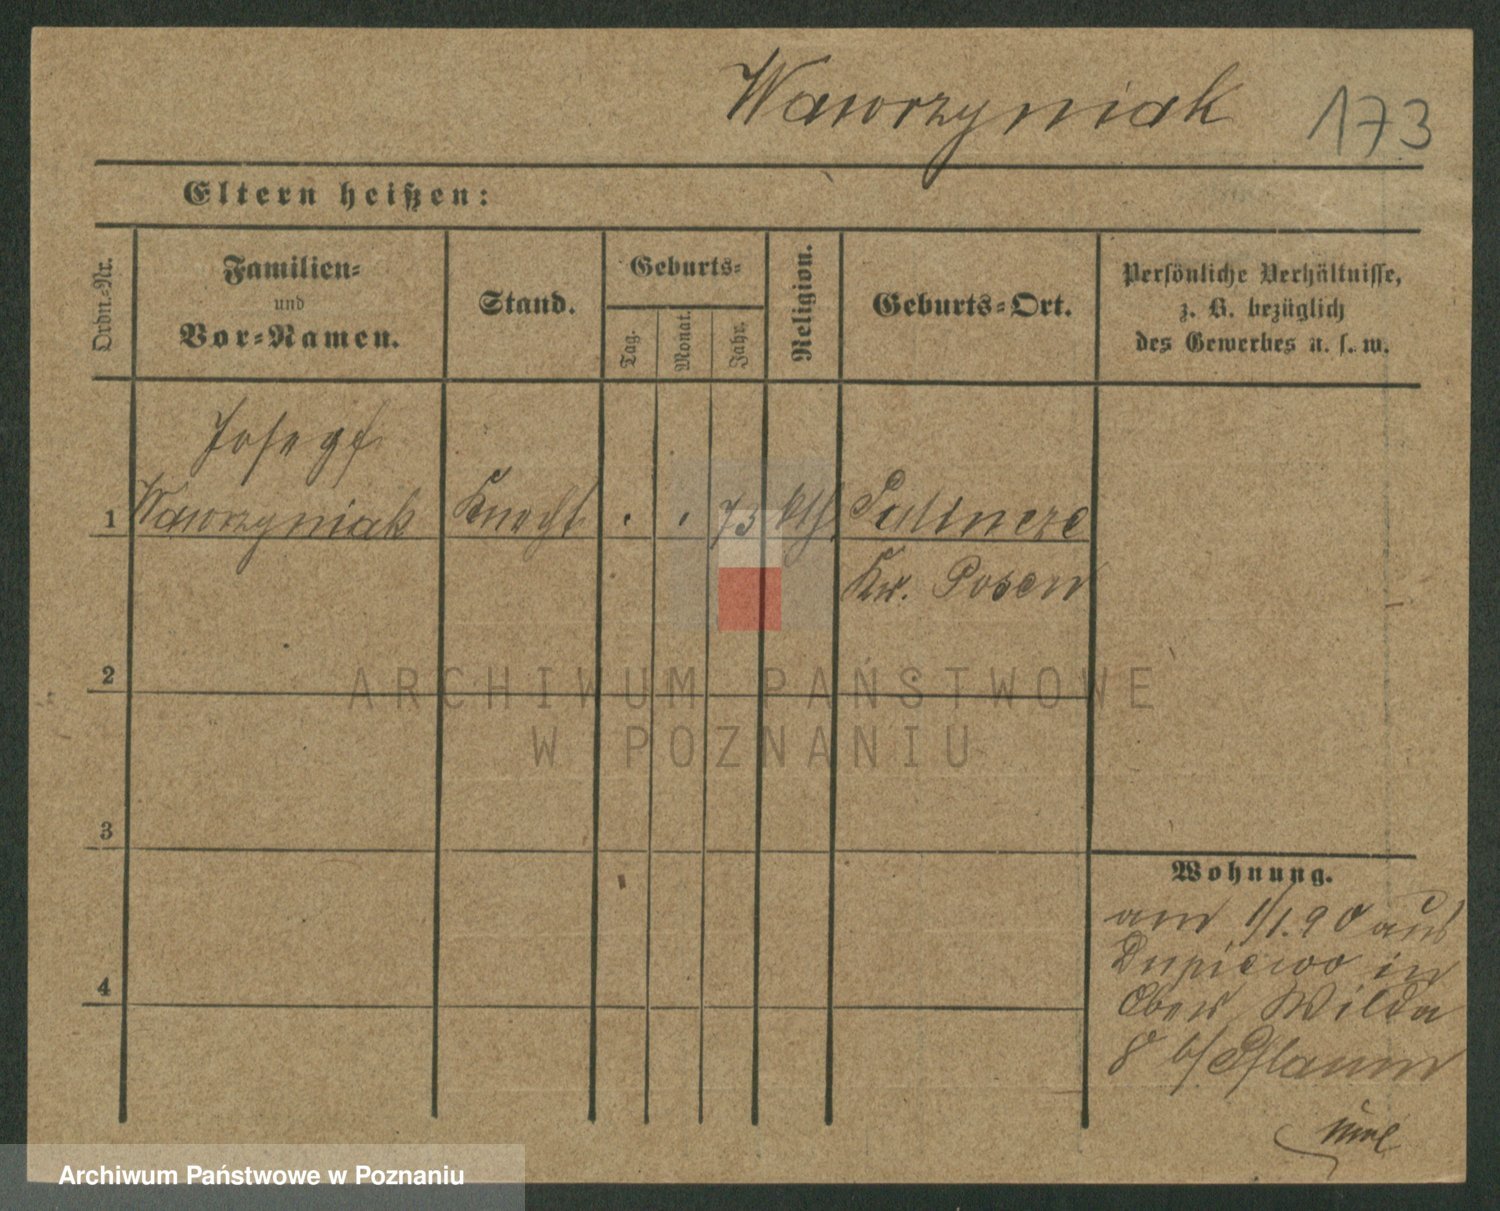 Wawrzyniak 173
Eltern heißen:
Ordn.-Nr.
Familien-
und
Vor-Namen.
Stand.
Geburts-
Tag.
Monat.
Jahr.
Religion.
Geburts-Ort.
Persönliche Verhältnisse,
z. B. bezüglich
des Gewerbes u. s. w.
Josepf
1 Wawrzyniak Knecht 75 kth.
Kr. Posen
2
ARCHIWUM PAŃSTWOWE
W POZNANIU
3
Wohnung.
am 1/1.90 aus
Dupiewo in
4
Ober Wilda
8 b/Pflaum
Archiwum Państwowe w Poznaniu